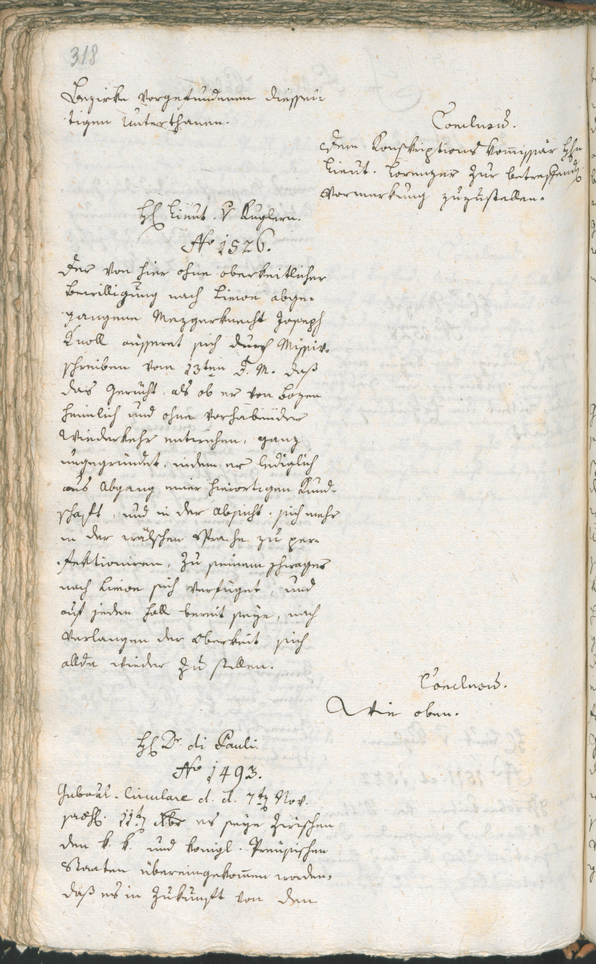 318
Bezirke vorgefundenen diessei-
tigen Unterthanen.
Conclusum.
Dem Konskriptions Kom̅issär H
Lieut. zur betreffend
Vormerkung zuzustellen.
H Lieut. v Kuglern.
No 1526.
Der von hier ohne oberkeitlicher
Bewilligung nach Limon abge-
gangene Mezgerknecht Joseph
Knoll äusseret sich durch Missiv-
schreiben vom 23ten d. M. daß
das Gerücht, als ob er von Bozen
heimlich und ohne vorhabender
Wiederkehr entwichen, ganz
ungegründet, indem er lediglich
aus Abgang einer hierortigen Kund-
schaft, und in der Absicht, sich mehr
in der wälschen Sprache zu per-
fektioniren, zu seinem Schwager
nach Limon sich verfüget, und
auf jeden Fall bereit seye, nach
Verlangen der Oberkeit sich
allda wieder zu stellen.
Conclusum.
Wie oben.
H Dr. di Pauli.
No 1493.
Gubernl. Circulare d. d. 7ten Nov.
11ten Xbr es seye zwischen
den k. k. und königl. Preusischen
Staaten übereingekom̅en worden,
daß es in Zukunft von den